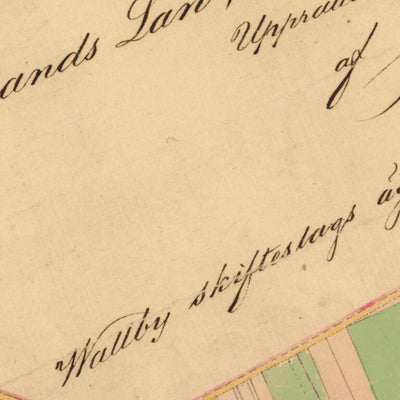 ands Län
Uppräta
af
Wallby skifteslags äg